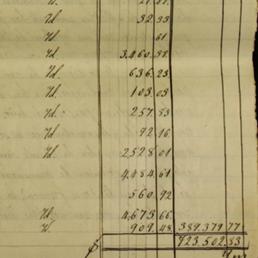 Id.
Id. 32.33
Id. 61
Id. 3,460.38
Id. 636.23
Id. 103.03
Id. 257.53
Id. 92.16
Id. 2528.01
4,484.61
560.92
Id. 4,673.66
Id. 909.48 389,379.77
923,502.33